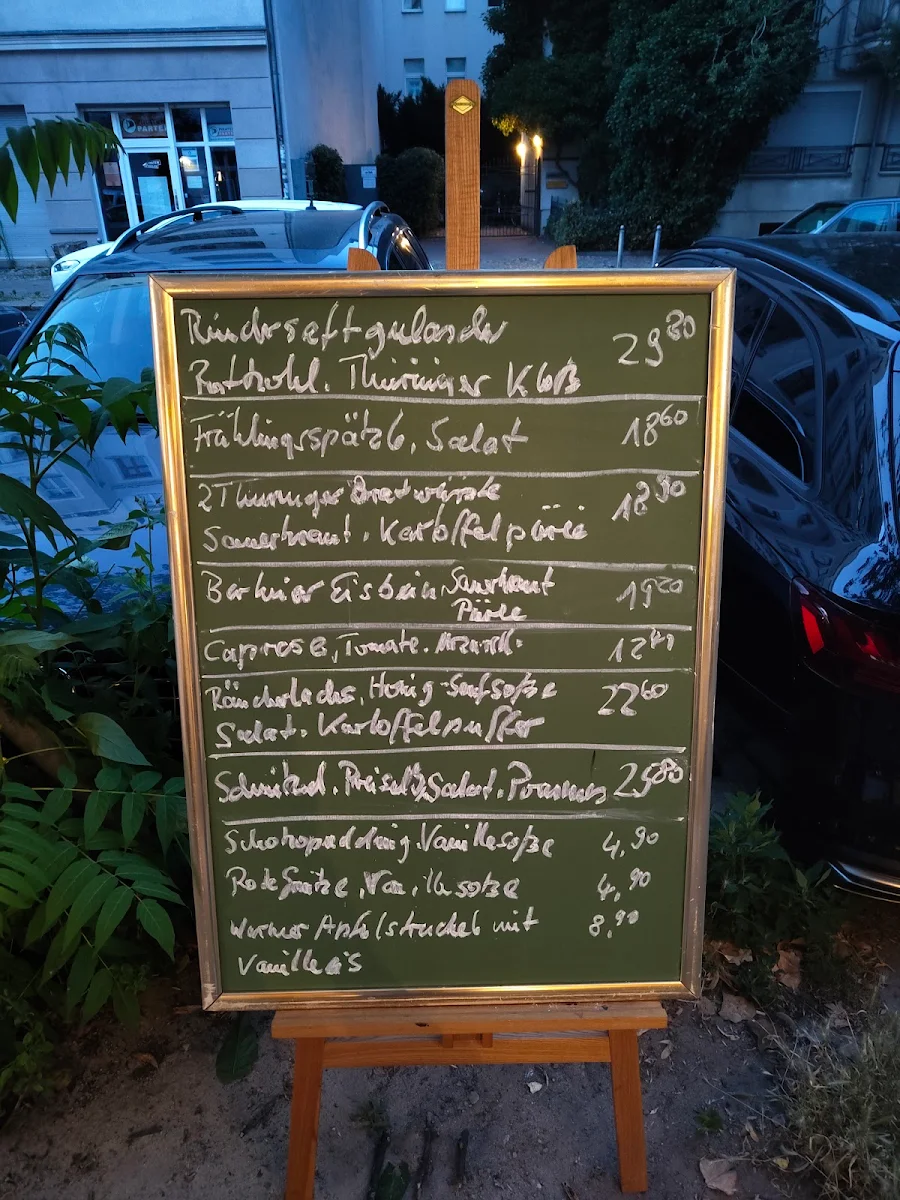 PARTEI
Rindersaftgulasch 29 80
Rotkohl. Thüringer Kloß
Frühlingsspätzle, Salat 18 60
2 Thüringer Bratwürste 18 90
Sauerkraut. Kartoffelpüree
Berliner Eisbein Sauerkraut 19 20
Püree
Caprese, Tomate. Mozzarella
Räucherlachs, Honig-Senfsoße 22 60
Salat. Kartoffelpuffer
Schnitzel. Preiselb, Salat. Pommes 25 80
Schokopudding. Vanillesoße 4,90
Rote Grütze, Vanillesoße 4,90
warmer Apfelstrudel mit 8,90
Vanilleeis